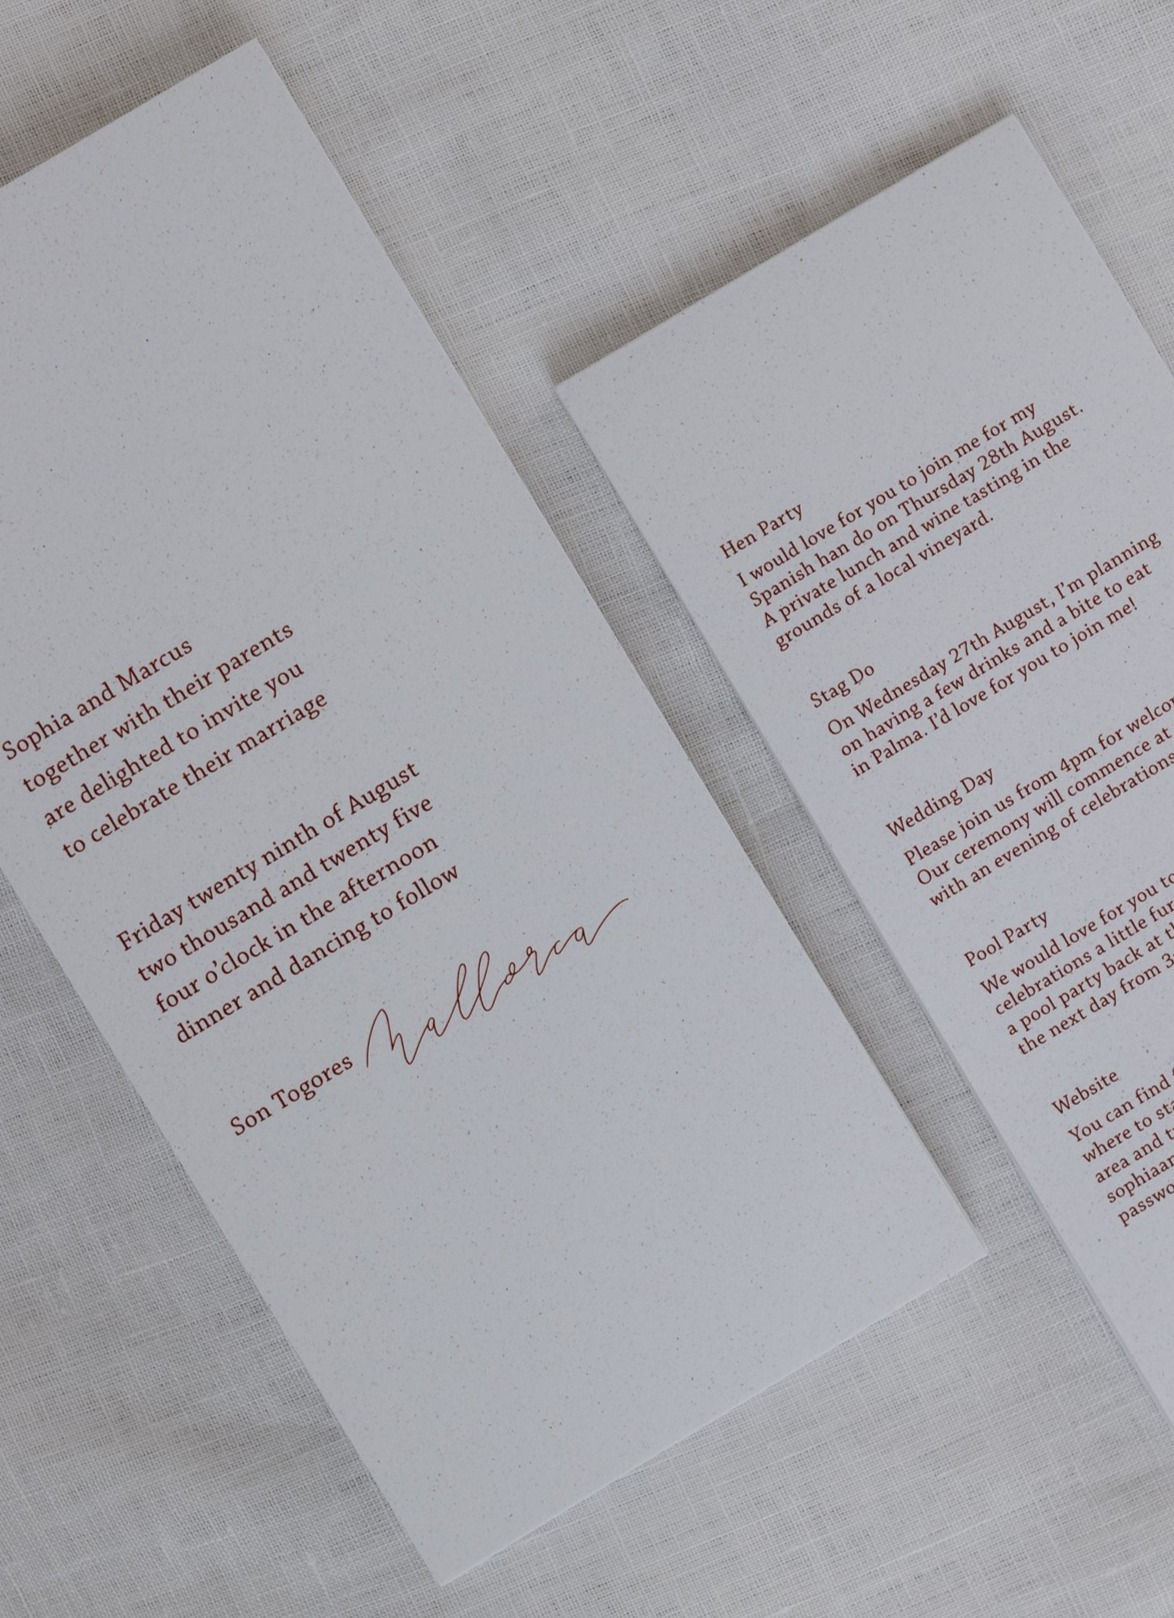 Sophia and Marcus
together with their parents
are delighted to invite you
to celebrate their marriage
Friday twenty ninth of August
two thousand and twenty five
four o'clock in the afternoon
dinner and dancing to follow
Son Togores Mallorca
Hen Party
I would love for you to join me for my
Spanish han do on Thursday 28th August.
A private lunch and wine tasting in the
grounds of a local vineyard.
Stag Do
On Wednesday 27th August, I'm planning
on having a few drinks and a bite to eat
in Palma. I'd love for you to join me!
Wedding Day
Please join us from 4pm for
Our ceremony will commence at
with an evening of celebrations
Pool Party
We would love for you to
celebrations a little
a pool party back at
the next day from
Website
You can find
where to
area and